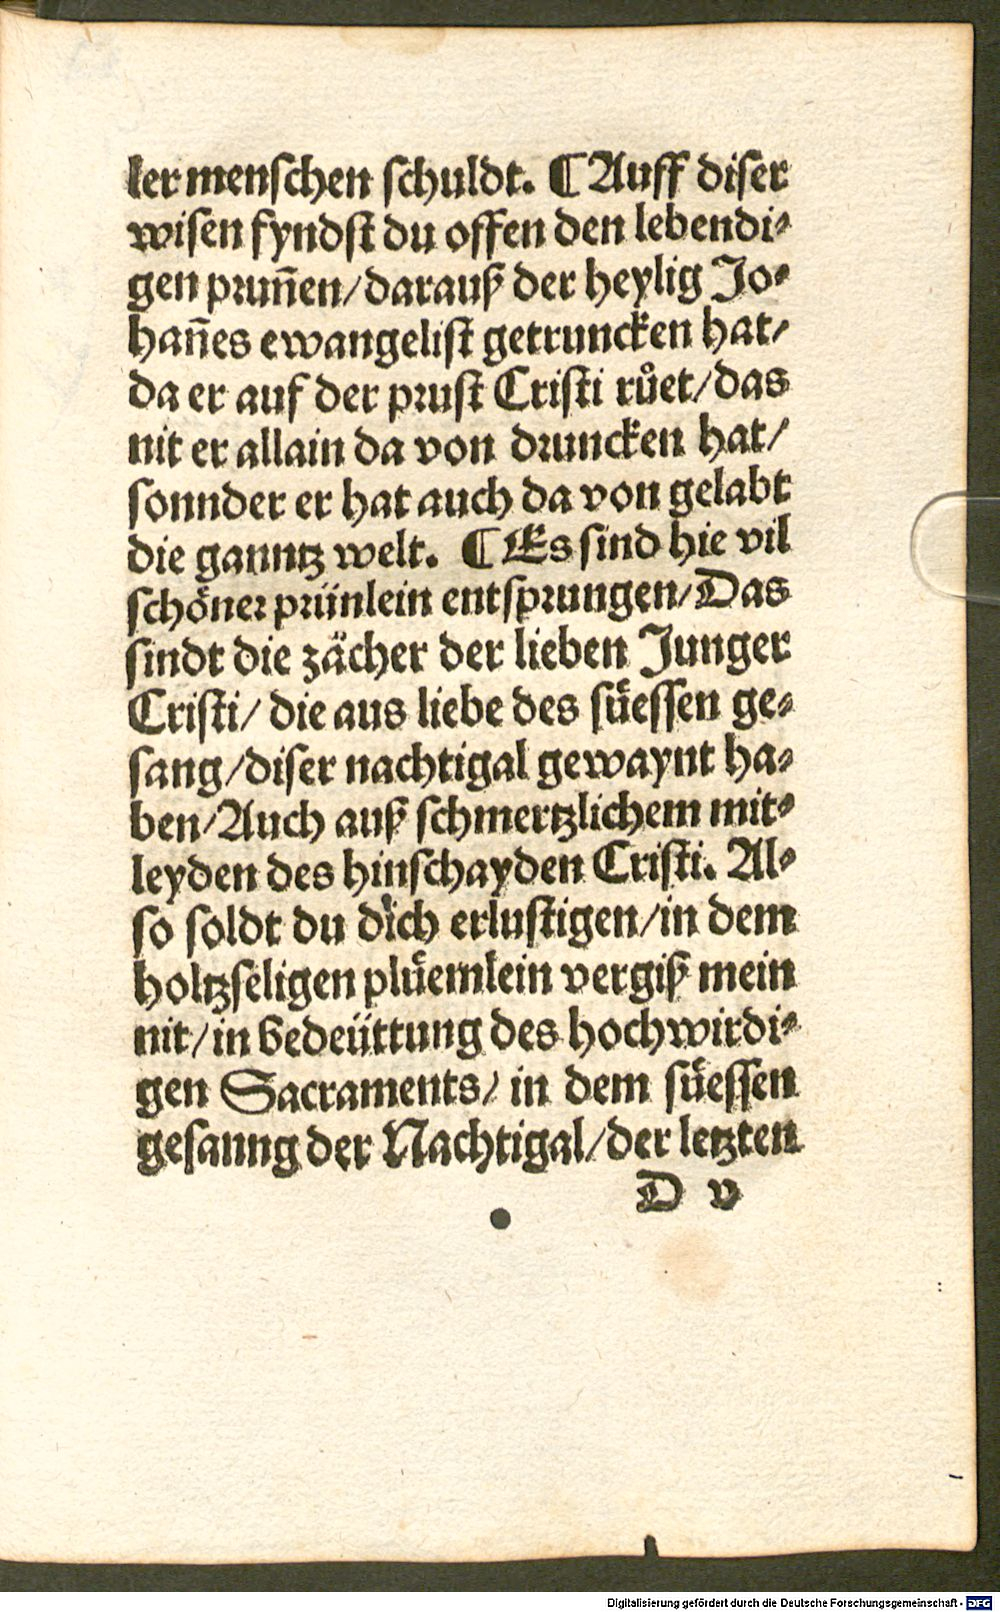 ler menschen schuldt. ¶ Auff diser
wisen fyndst du offen den lebendi⸗
gen prun̄en/darauß der heylig Jo⸗
han̄es ewangelist getruncken hat/
da er auf der prust Cristi růet/das
nit er allain da von druncken hat/
sonnder er hat auch da von gelabt
die ganntz welt. ¶ Es sind hie vil
schöner prünlein entsprungen/Das
sindt die zächer der lieben Junger
Cristi/ die aus liebe des süessen ge⸗
sang/diser nachtigal gewaynt ha⸗
ben/Auch auß schmertzlichem mit⸗
leyden des hinschayden Cristi. Al⸗
so soldt du dich erlustigen/in dem
holtzseligen plüemlein vergiß mein
nit/in bedeüttung des hochwirdi⸗
gen Sacraments/ in dem süessen
gesanng der Nachtigal/der letzten
D v
Digitalisierung gefördert durch die Deutsche Forschungsgemeinschaft - DFG